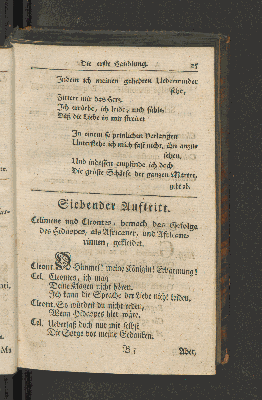 Die erste Handlung. 25
Indem ich meinen geliebten Ueberwinder
sehe,
Zittert mir das Herz.
Ich erröthe, ich leide, und fühle,
Daß die Liebe in mir streitet
In einem so peinlichen Verlangen
Unterstehe ich mich fast nicht, ihn anzu
sehen,
Und indessen empfinde ich doch
Die größte Schärfe der ganzen Marter,
Siebender Auftritt.
Celimene und Cleontes, hernach das Gefolge
des Hidaspes, als Africaner, und Africane-
rinnen, gekleidet.
Cleont. O Himmel! meine Königin! Erbarmung!
Cel. Cleontes, ich mag
Deine Klagen nicht hören.
Ich kann die Sprache der Liebe nicht leiden.
Cleont. So würdest du nicht reden,
Wenn Hidaspes hier wäre.
Cel. Ueberlaß doch nur mir selbst
Die Sorge vor meine Gedanken.
B 5 Aber,